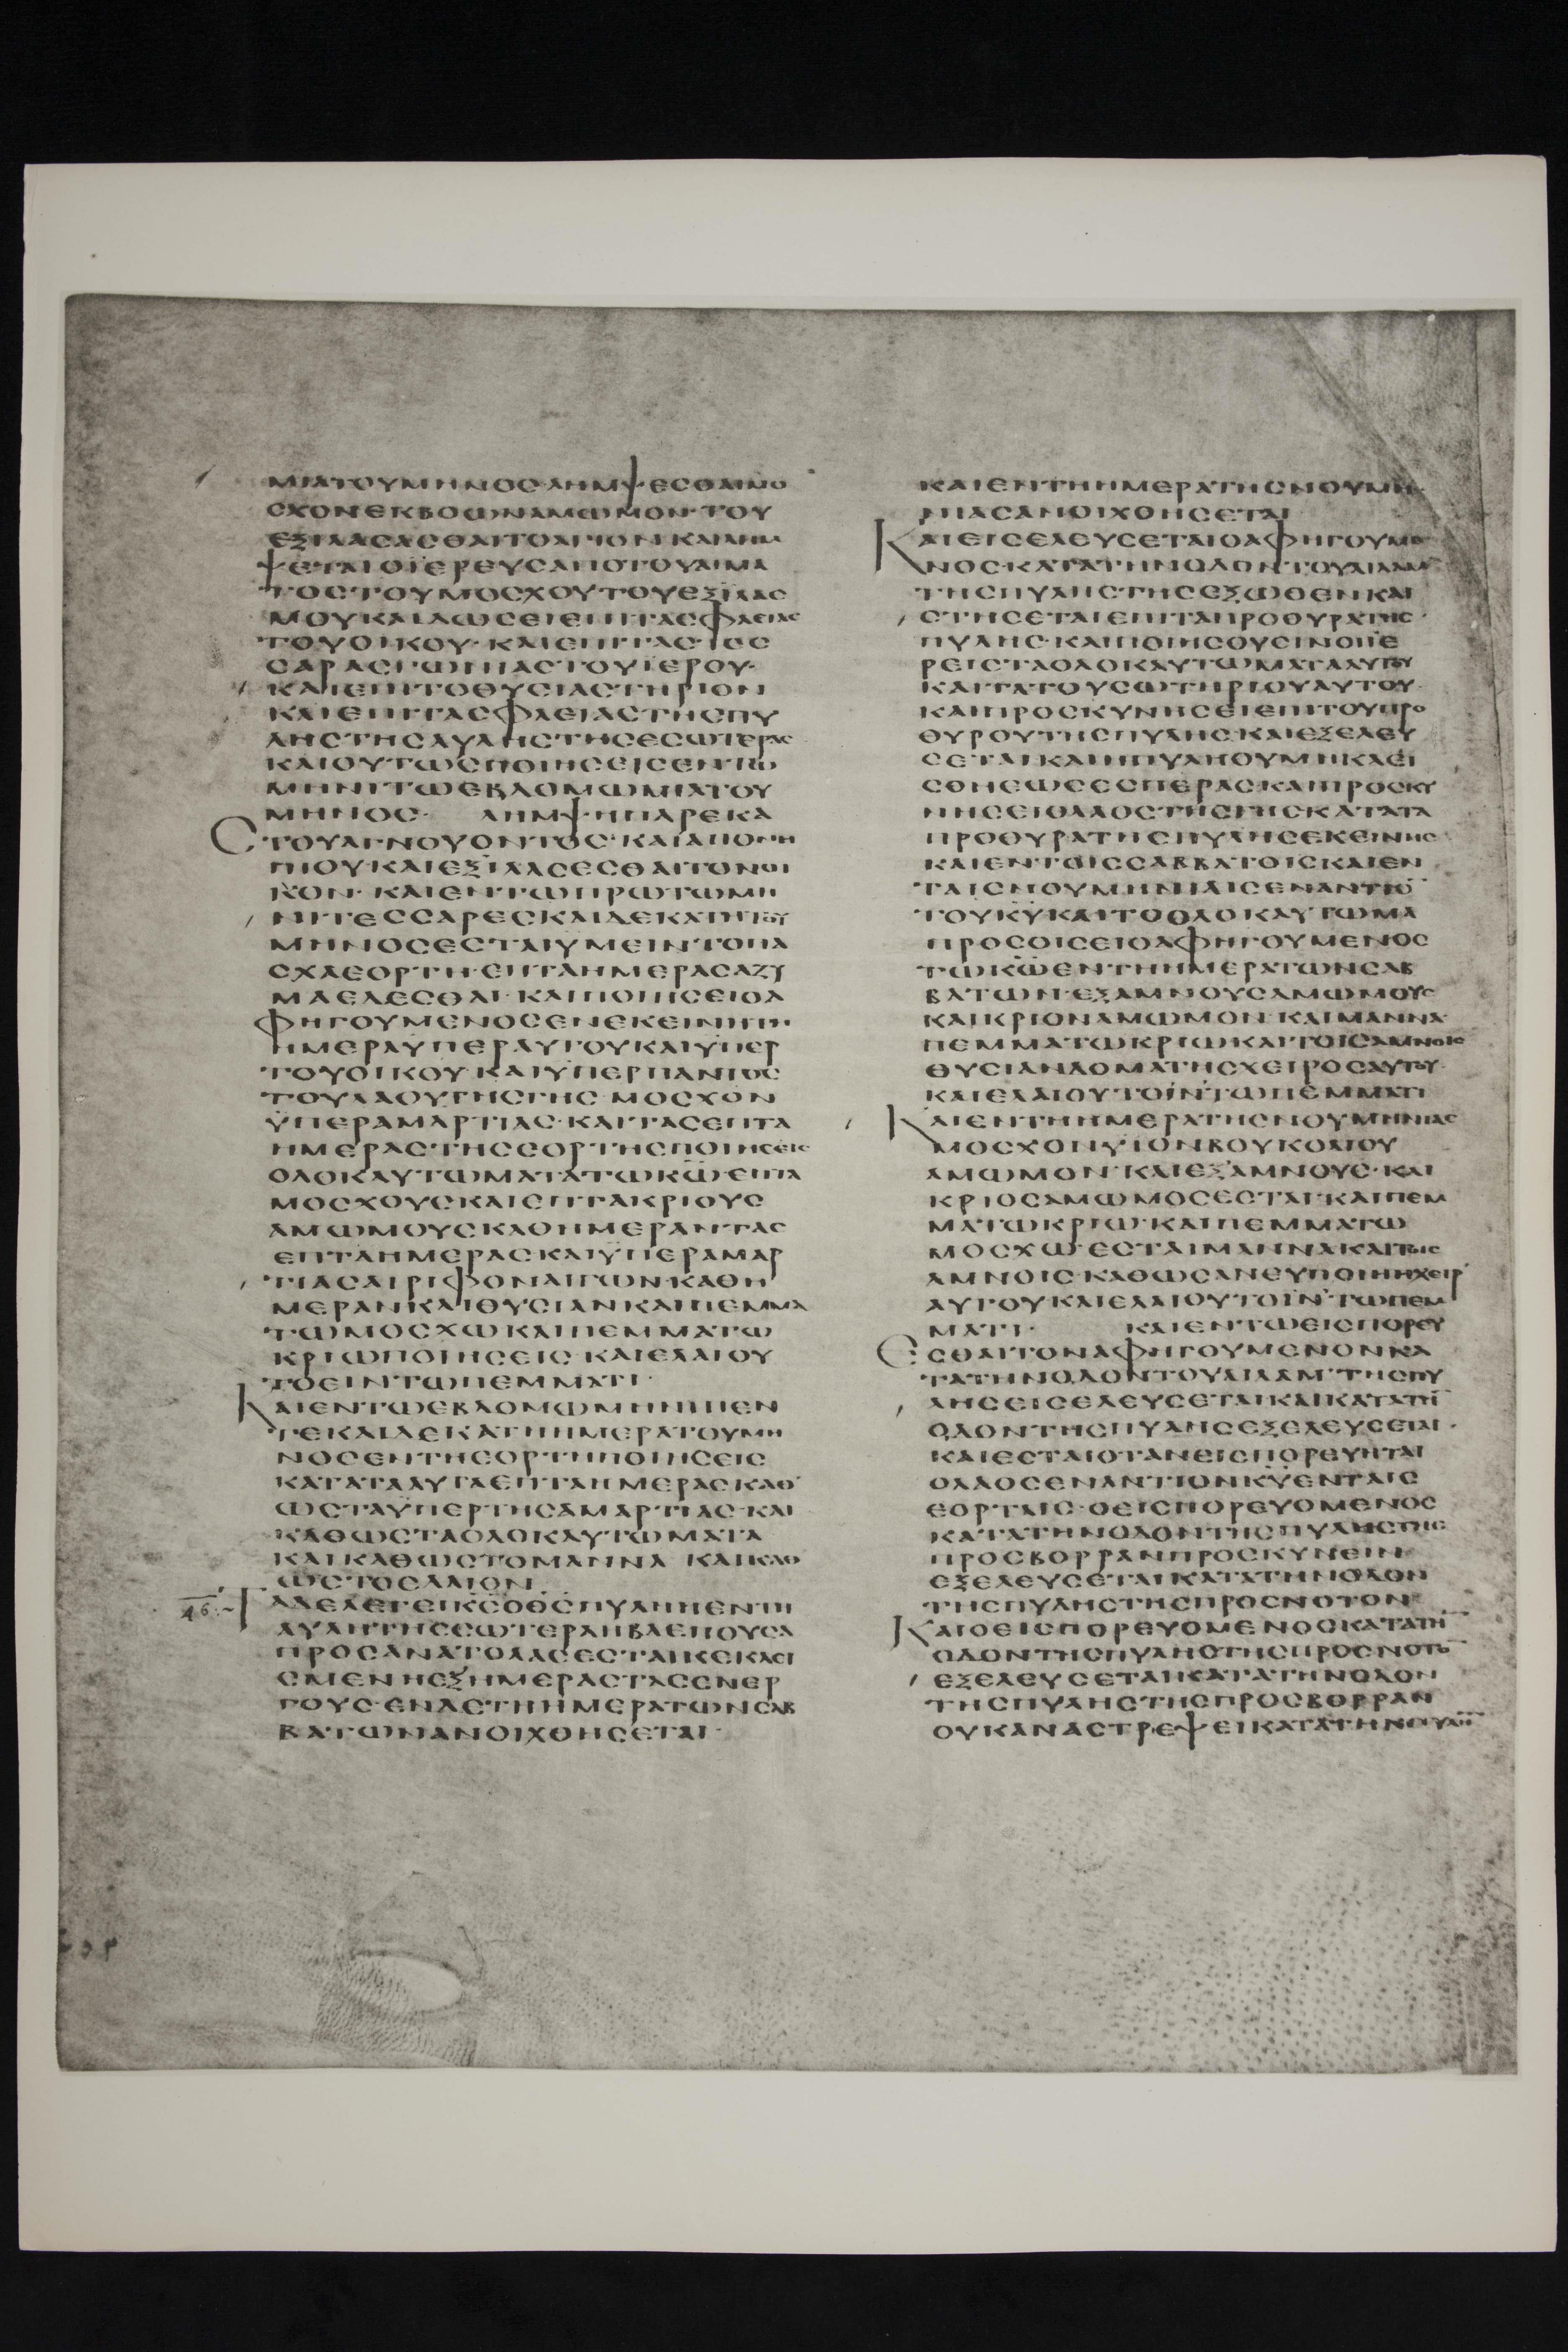 ΜΙΑΤΟΥΜΗΝΟΣΛΗΜΨΕΣΘΑΙΜΟ
ΣΧΟΝΕΚΒΟΩΝΑΜΩΜΟΝ·ΤΟΥ
ΕΞΙΛΑΣΑΣΘΑΙΤΟΑΓΙΟΝ·ΚΑΙΛΗΜ
ΨΕΤΑΙΟΪΕΡΕΥΣΑΠΟΤΟΥΑΙΜΑ
ΤΟΣΤΟΥΜΟΣΧΟΥΤΟΥΕΞΙΛΑΣ
ΜΟΥΚΑΙΔΩΣΕΙΕΠΙΤΑΣΦΛΕΙΑΣ
ΤΟΥΟΙΚΟΥ·ΚΑΙΕΠΙΤΑΣΤΕΣ
ΣΑΡΑΣΓΩΝΙΑΣΤΟΥΪΕΡΟΥ·
ΚΑΙΕΠΙΤΟΘΥΣΙΑΣΤΗΡΙΟΝ
ΚΑΙΕΠΙΤΑΣΦΛΕΙΑΣΤΗΣΠΥ
ΛΗΣΤΗΣΑΥΛΗΣΤΗΣΕΣΩΤΕΡΑΣ
ΚΑΙΟΥΤΩΣΠΟΙΗΣΕΙΣΕΝΤΩ
ΜΗΝΙΤΩΕΒΔΟΜΩΜΙΑΤΟΥ
ΜΗΝΟΣ· ΛΗΜΨΗΠΑΡΕΚΑ
ΣΤΟΥΑΓΝΟΥΟΝΤΟΣ·ΚΑΙΑΠΟΝΗ
ΠΙΟΥ·ΚΑΙΕΞΙΛΑΣΕΣΘΑΙΤΟΝΟΙ
ΚΟΝ·ΚΑΙΕΝΤΩΠΡΩΤΩΜΗ
ΝΙΤΕΣΣΑΡΕΣΚΑΙΔΕΚΑΤΗΤΟΥ
ΜΗΝΟΣΕΣΤΑΙΥΜΕΙΝΤΟΠΑ
ΣΧΑΕΟΡΤΗ·ΕΠΤΑΗΜΕΡΑΣΑΖΥ
ΜΑΕΔΕΣΘΑΙ·ΚΑΙΠΟΙΗΣΕΙΟΑ
ΦΗΓΟΥΜΕΝΟΣΕΝΕΚΕΙΝΗΤΗ
ΗΜΕΡΑΫΠΕΡΑΥΤΟΥΚΑΙΫΠΕΡ
ΤΟΥΟΙΚΟΥ·ΚΑΙΫΠΕΡΠΑΝΤΟΣ
ΤΟΥΛΑΟΥΤΗΣΓΗΣ·ΜΟΣΧΟΝ
ΫΠΕΡΑΜΑΡΤΙΑΣ·ΚΑΙΤΑΣΕΠΤΑ
ΗΜΕΡΑΣΤΗΣΕΟΡΤΗΣΠΟΙΗΣΕΙΣ
ΟΛΟΚΑΥΤΩΜΑΤΑΤΩΚΩ·ΕΠΤΑ
ΜΟΣΧΟΥΣΚΑΙΕΠΤΑΚΡΙΟΥΣ
ΑΜΩΜΟΥΣΚΑΘΗΜΕΡΑΝΤΑΣ
ΕΠΤΑΗΜΕΡΑΣΚΑΙΫΠΕΡΑΜΑΡ
ΤΙΑΣΑΙΡΙΦΟΝΑΙΓΩΝ·ΚΑΘΗ
ΜΕΡΑΝΚΑΙΘΥΣΙΑΝΚΑΙΠΕΜΜΑ
ΤΩΜΟΣΧΩΚΑΙΠΕΜΜΑΤΩ
ΚΡΙΩΠΟΙΗΣΕΙΣ·ΚΑΙΕΛΑΙΟΥ
ΤΟΕΙΝΤΩΠΕΜΜΑΤΙ·
ΚΑΙΕΝΤΩΕΒΔΟΜΩΜΗΝΙΠΕΝ
ΤΕΚΑΙΔΕΚΑΤΗΗΜΕΡΑΤΟΥΜΗ
ΝΟΣΕΝΤΗΕΟΡΤΗΠΟΙΗΣΕΙΣ
ΚΑΤΑΤΑΑΥΤΑΕΠΤΑΗΜΕΡΑΣΚΑΘ
ΩΣΤΑΫΠΕΡΤΗΣΑΜΑΡΤΙΑΣ·ΚΑΙ
ΚΑΘΩΣΤΑΟΛΟΚΑΥΤΩΜΑΤΑ
ΚΑΙΚΑΘΩΣΤΟΜΑΝΝΑ ΚΑΙΚΑΘ
ΩΣΤΟΕΛΑΙΟΝ
46 ΤΑΔΕΛΕΓΕΙΚΣΟΘΣΠΥΛΗΗΕΝΤΗ
ΑΥΛΗΤΗΕΣΩΤΕΡΑΗΒΛΕΠΟΥΣΑ
ΠΡΟΣΑΝΑΤΟΛΑΣΕΣΤΑΙΚΕΚΛΕΙ
ΣΜΕΝΗΕΞΗΜΕΡΑΣΤΑΣΕΝΕΡ
ΓΟΥΣ·ΕΝΔΕΤΗΗΜΕΡΑΤΩΝΣΑΒ
ΒΑΤΩΝΑΝΟΙΧΘΗΣΕΤΑΙ·
ΚΑΙΕΝΤΗΗΜΕΡΑΤΗΣΝΟΥΜΗ
ΝΙΑΣΑΝΟΙΧΘΗΣΕΤΑΙ
ΚΑΙΕΙΣΕΛΕΥΣΕΤΑΙΟΑΦΗΓΟΥΜΕ
ΝΟΣ·ΚΑΤΑΤΗΝΟΔΟΝΤΟΥΑΙΛΑΜ
ΤΗΣΠΥΛΗΣΤΗΣΕΞΩΘΕΝΚΑΙ
ΣΤΗΣΕΤΑΙΕΠΙΤΑΠΡΟΘΥΡΑΤΗΣ
ΠΥΛΗΣ·ΚΑΙΠΟΙΗΣΟΥΣΙΝΟΙΪΕ
ΡΕΙΣΤΑΟΛΟΚΑΥΤΩΜΑΤΑΑΥΤΟΥ
ΚΑΙΤΑΤΟΥΣΩΤΗΡΙΟΥΑΥΤΟΥ·
ΚΑΙΠΡΟΣΚΥΝΗΣΕΙΕΠΙΤΟΥΠΡΟ
ΘΥΡΟΥΤΗΣΠΥΛΗΣ·ΚΑΙΕΞΕΛΕΥ
ΣΕΤΑΙ·ΚΑΙΗΠΥΛΗΟΥΜΗΚΛΕΙ
ΣΘΗΕΩΣΕΣΠΕΡΑΣ·ΚΑΙΠΡΟΣΚΥ
ΝΗΣΕΙΟΛΑΟΣΤΗΣΓΗΣΚΑΤΑΤΑ
ΠΡΟΘΥΡΑΤΗΣΠΥΛΗΣΕΚΕΙΝΗΣ
ΚΑΙΕΝΤΟΙΣΣΑΒΒΑΤΟΙΣΚΑΙΕΝ
ΤΑΙΣΝΟΥΜΗΝΙΑΙΣΕΝΑΝΤΙΟ
ΤΟΥΚΥ·ΚΑΙΤΟΟΛΟΚΑΥΤΩΜΑ
ΠΡΟΣΟΙΣΕΙΟΑΦΗΓΟΥΜΕΝΟΣ
ΤΩΚΩΕΝΤΗΗΜΕΡΑΤΩΝΣΑΒ
ΒΑΤΩΝ·ΕΞΑΜΝΟΥΣΑΜΩΜΟΥΣ
ΚΑΙΚΡΙΟΝΑΜΩΜΟΝ·ΚΑΙΜΑΝΝΑ
ΠΕΜΜΑΤΩΚΡΙΩΚΑΙΤΟΙΣΑΜΝΟΙΣ
ΘΥΣΙΑΝΔΟΜΑΤΗΣΧΕΙΡΟΣΑΥΤΟΥ·
ΚΑΙΕΛΑΙΟΥΤΟΪΝΤΩΠΕΜΜΑΤΙ
ΚΑΙΕΝΤΗΗΜΕΡΑΤΗΣΝΟΥΜΗΝΙΑΣ
ΜΟΣΧΟΝΥΪΟΝΒΟΥΚΟΛΙΟΥ
ΑΜΩΜΟΝ·ΚΑΙΕΞΑΜΝΟΥΣ·ΚΑΙ
ΚΡΙΟΣΑΜΩΜΟΣΕΣΤΑΙ·ΚΑΙΠΕΜ
ΜΑΤΩΚΡΙΩ·ΚΑΙΠΕΜΜΑΤΩ
ΜΟΣΧΩΕΣΤΑΙΜΑΝΝΑΚΑΙΤΟΙΣ
ΑΜΝΟΙΣ·ΚΑΘΩΣΑΝΕΥΠΟΙΗΗΧΕΙΡ
ΑΥΤΟΥΚΑΙΕΛΑΙΟΥΤΟΪΝΤΩΠΕΜ
ΜΑΤΙ· ΚΑΙΕΝΤΩΕΙΣΠΟΡΕΥ
ΕΣΘΑΙΤΟΝΑΦΗΓΟΥΜΕΝΟΝΚΑ
ΤΑΤΗΝΟΔΟΝΤΟΥΑΙΛΑΜ·ΤΗΣΠΥ
ΛΗΣΕΙΣΕΛΕΥΣΕΤΑΙΚΑΙΚΑΤΑΤΗ
ΟΔΟΝΤΗΣΠΥΛΗΣΕΞΕΛΕΥΣΕΤΑΙ·
ΚΑΙΕΣΤΑΙΟΤΑΝΕΙΣΠΟΡΕΥΗΤΑΙ
ΟΛΑΟΣΕΝΑΝΤΙΟΝΚΥΕΝΤΑΙΣ
ΕΟΡΤΑΙΣ·ΟΕΙΣΠΟΡΕΥΟΜΕΝΟΣ
ΚΑΤΑΤΗΝΟΔΟΝΤΗΣΠΥΛΗΣΤΗΣ
ΠΡΟΣΒΟΡΡΑΝΠΡΟΣΚΥΝΕΙΝ
ΕΞΕΛΕΥΣΕΤΑΙΚΑΤΑΤΗΝΟΔΟΝ
ΤΗΣΠΥΛΗΣΤΗΣΠΡΟΣΝΟΤΟΝ
ΚΑΙΟΕΙΣΠΟΡΕΥΟΜΕΝΟΣΚΑΤΑΤΗ
ΟΔΟΝΤΗΣΠΥΛΗΣΤΗΣΠΡΟΣΝΟΤΟ
ΕΞΕΛΕΥΣΕΤΑΙΚΑΤΑΤΗΝΟΔΟΝ
ΤΗΣΠΥΛΗΣΤΗΣΠΡΟΣΒΟΡΡΑΝ
ΟΥΚΑΝΑΣΤΡΕΨΕΙΚΑΤΑΤΗΝ